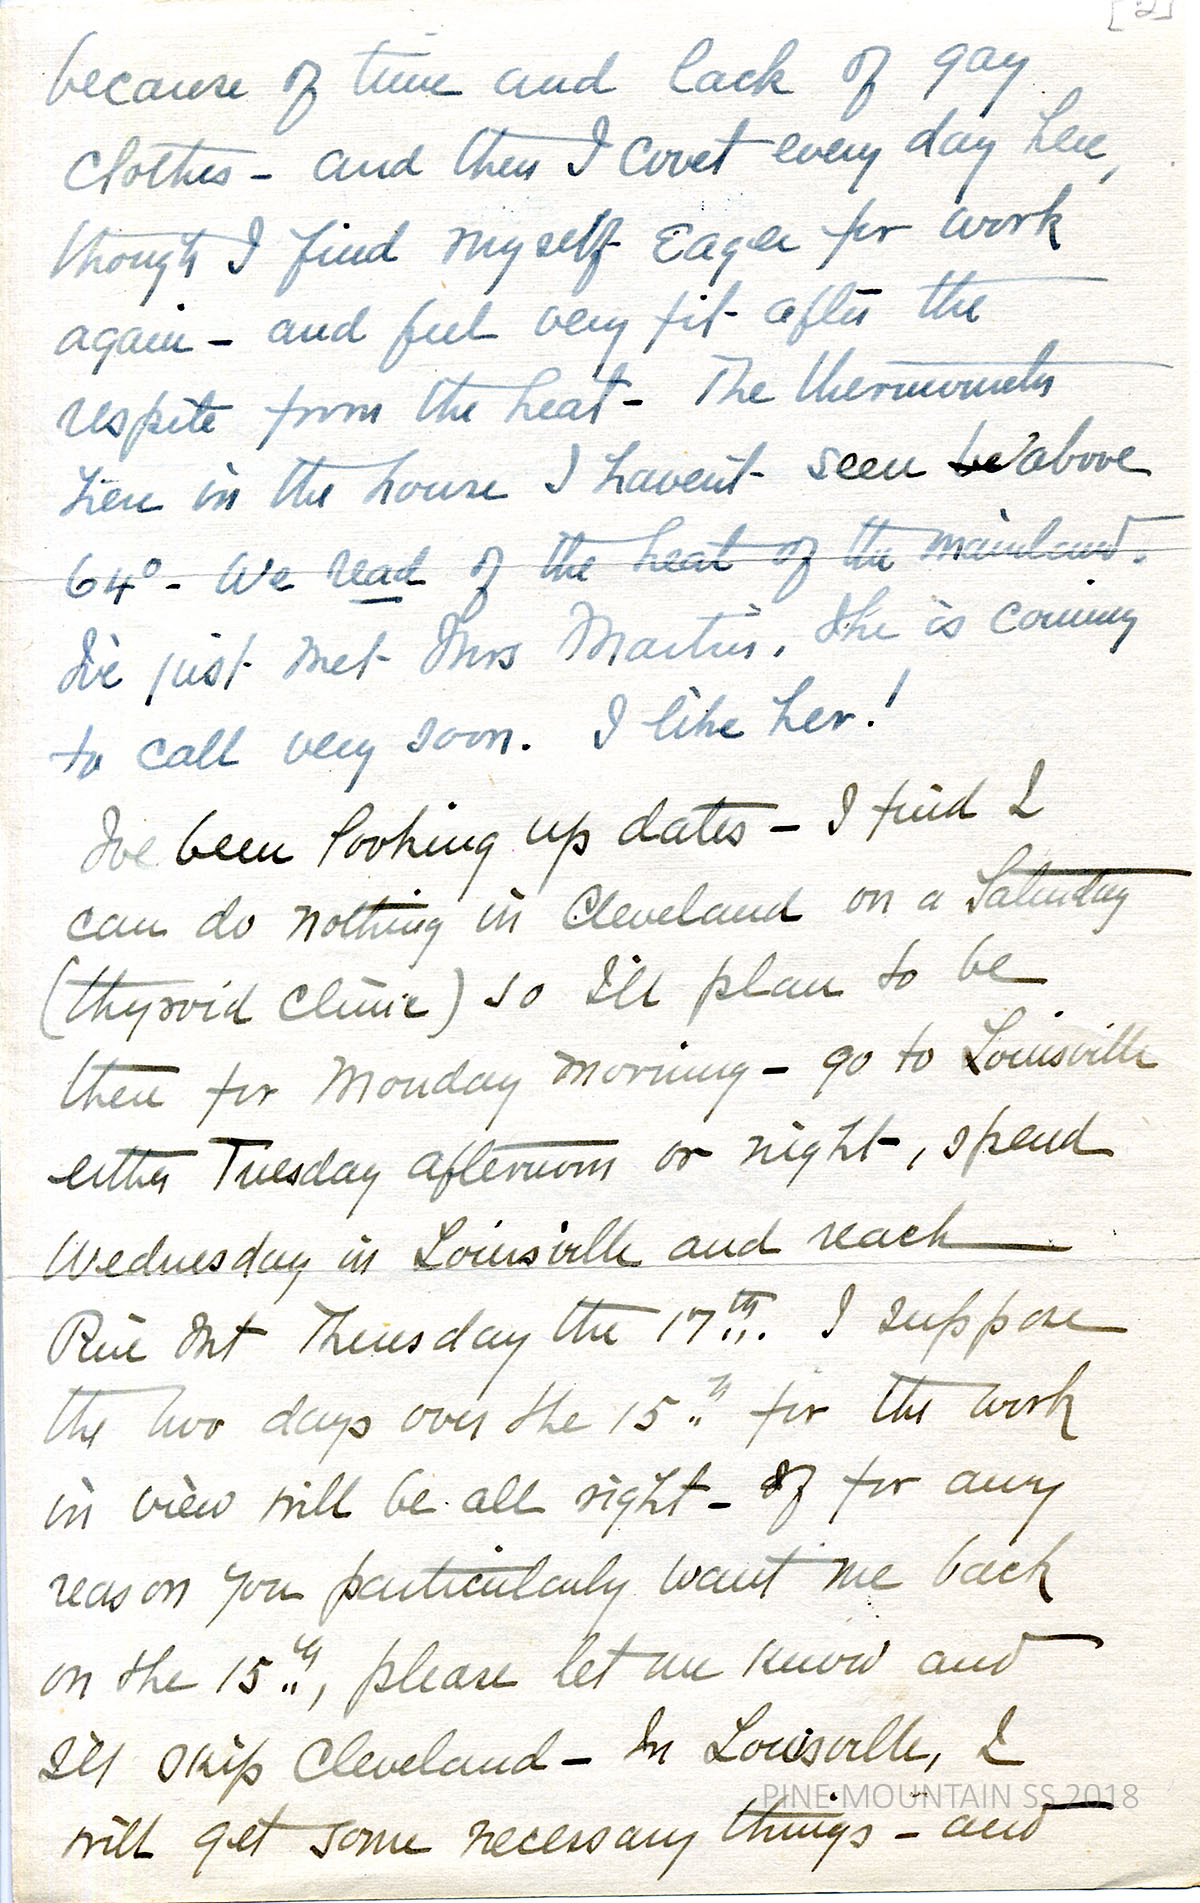 [2]
because of time and lack of gay
clothes - and then I covet every day here,
though I find myself eager for work
again - and feel very fit after the
respite from the heat - The thermometer
here in the house I havent seen be above
64° - We read of the heat of the mainland.
I've just met Mrs Martin. She is coming
to call very soon. I like her!
I've been looking up dates - I find I
can do nothing in Cleveland on a Saturday
(thyroid clinic) so I'll plan to be
there for Monday morning - go to Louisville
either Tuesday afternoon or night, spend
Wednesday in Louisville and reach
Pine Mt Thursday the 17th. I suppose
the two days over the 15th for the work
in view will be all right - If for any
reason you particularly want me back
on the 15th, please let me know and
I'll skip Cleveland - In Louisville, I
will get some necessary things - and
PINE MOUNTAIN SS 2018